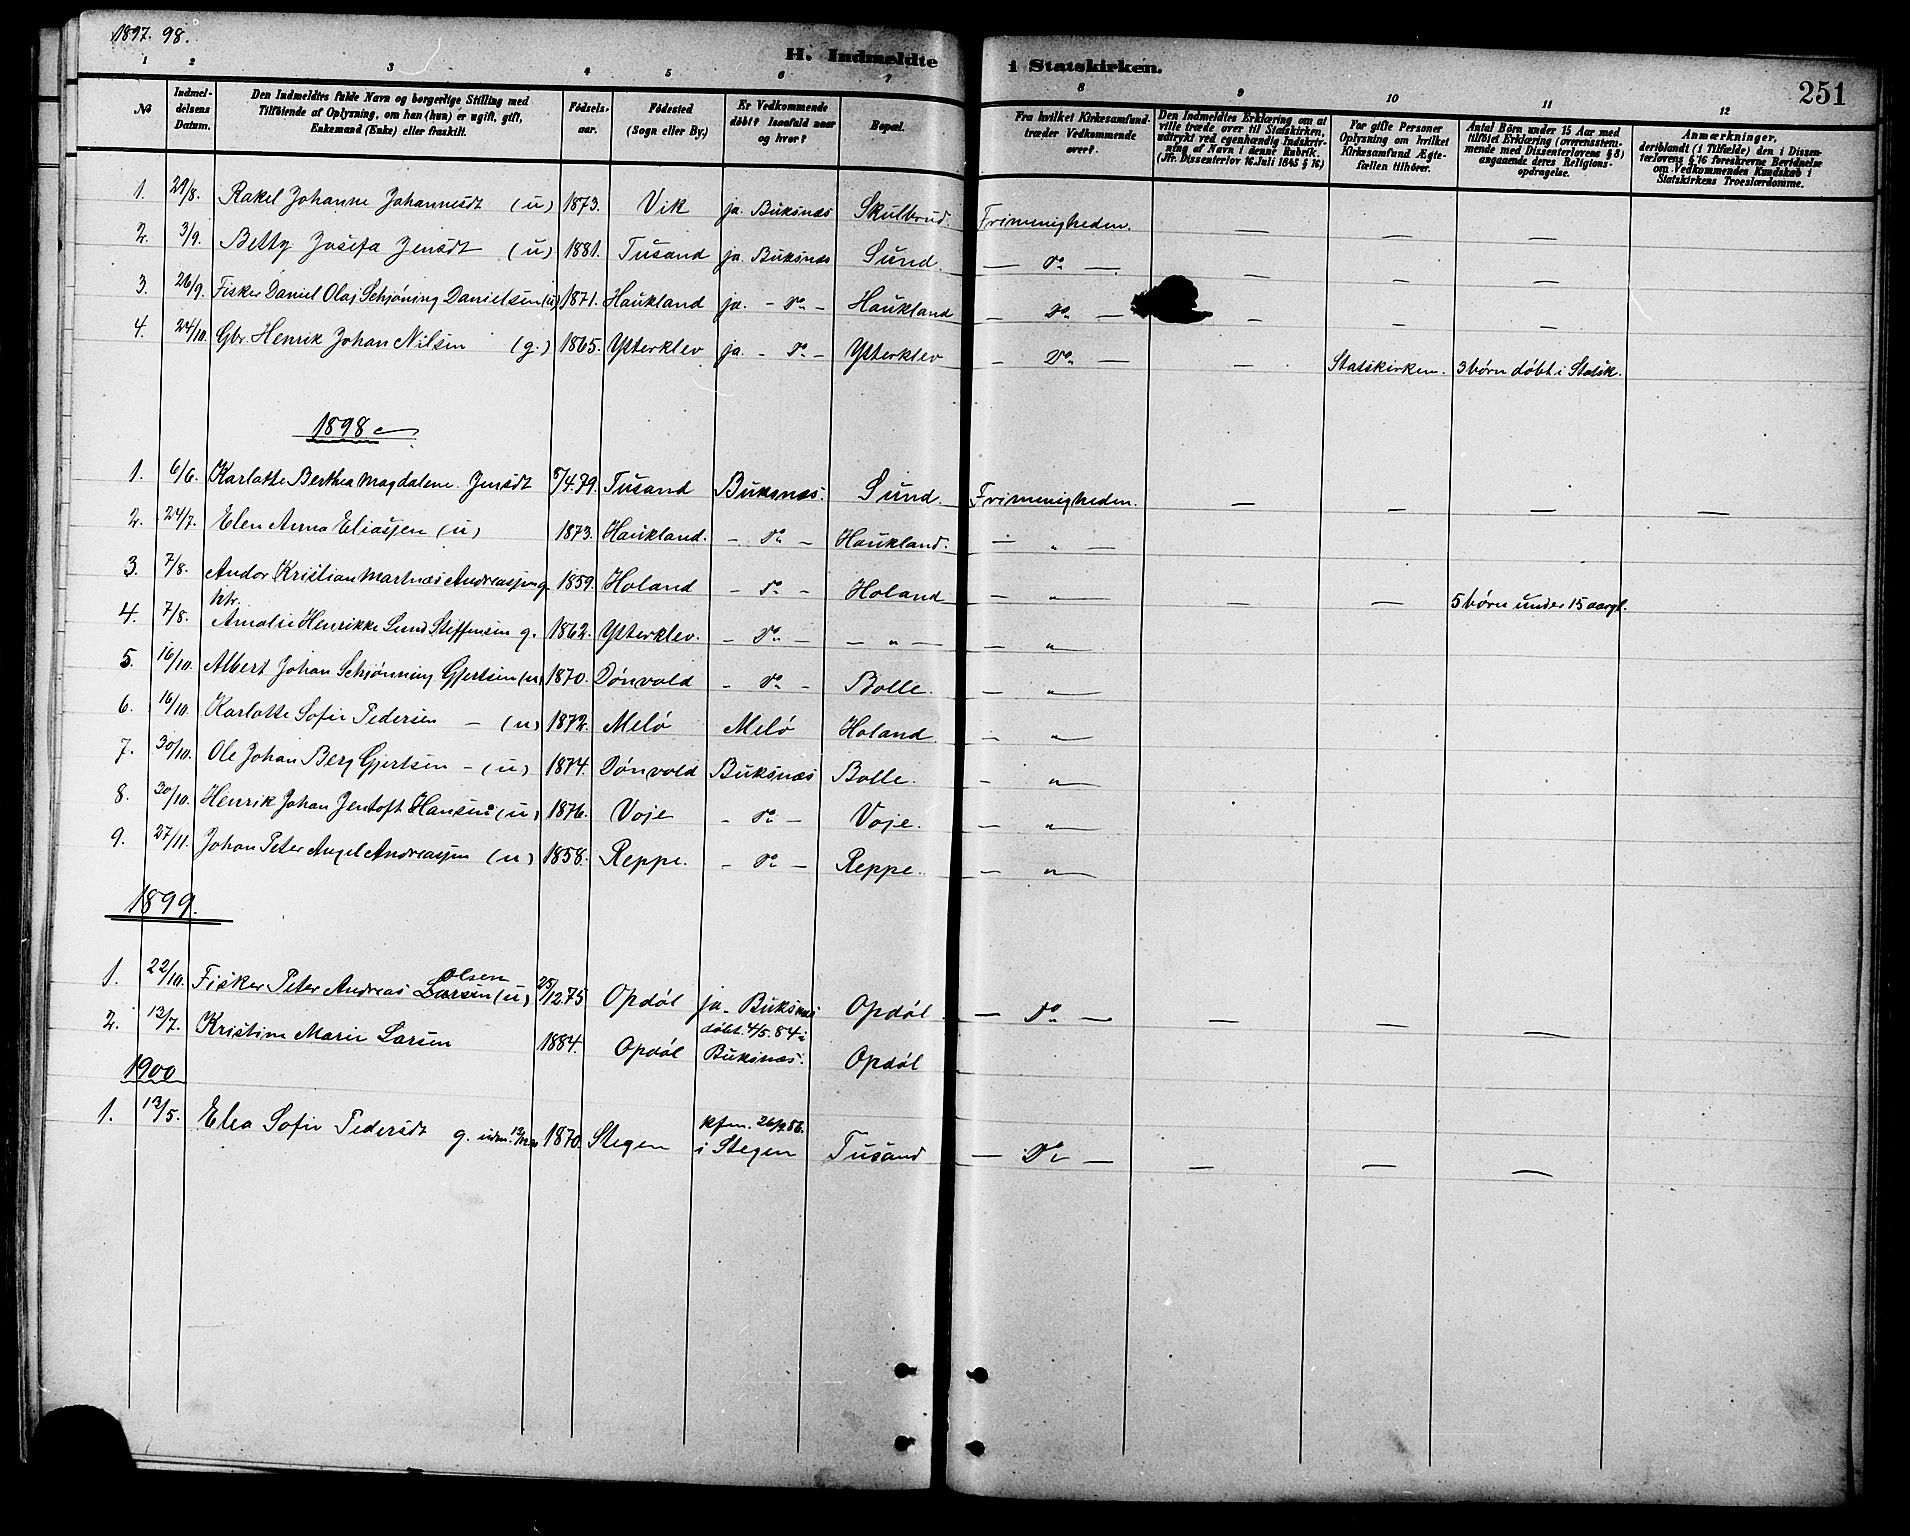 1897. 98.
H. Indmeldte i Statskirken.
251
1 2 3 4 5 6 7 8 9 10 11 12
No
Indmeldelsens Datum.
Den Indmeldtes fulde Navn og borgerlige Stilling med Tilföiende af Oplysning, om han (hun) er ugift, gift, Enkemand (Enke) eller fraskilt.
Födselsaar.
Födested (Sogn eller By.)
Er Vedkommende döbt? Isaafald naar og hvor?
Bopæl.
Fra hvilket Kirkesamfund træder Vedkommende over?
Den Indmeldtes Erklæring om at ville træde over til Statskirken, udtrykt ved egenhændig Indskrivning af Navn i denne Rubrik. (Jfr. Dissenterlov 16. Juli 1845 § 16)
For gifte Personer Oplysning om hvilket Kirkesamfund Ægtefællen tilhörer.
Antal Börn under 15 Aar med tilföiet Erklæring (overensstemmende med Dissenterlovens § 8) angaaende deres Religionsopdragelse.
Anmærkninger, deriblandt (i Tilfælde) den i Dissenterlovens § 16 foreskrevne Bevidnelse om Vedkommendes Kundskab i Statskirkens Troeslærdomme.
1. 29/8. Rakel Johanne Johannesdt (u) 1873. Vik ja. Buksnæs Skulbrud. Frimenigheden. — — —
2. 3/9. Betty Josefa Jensdt (u) 1881. Tusand ja. Buksnæs Sund. — Do — — — —
3. 26/9. Fisker Daniel Olaj Schjøning Danielsen (u) 1871. Haukland ja. - Do - Haukland — Do — — — —
4. 24/10. Gbr. Henrik Johan Nilsen (g.) 1865. Ytterklev ja. - Do - Ytterklev — Do — — Statskirken. 3 børn døbt i Statsk.
1898
1. 6/6. Karlotte Berthea Magdalene Jensdt 5/4.79. Tusand Buksnæs. Sund. Frimenigheden. — — — —
2. 24/7. Elen Anna Eliassen (u) 1873. Haukland. - Do - Haukland. — " —
3. 7/8. Andor Kristian Martnæs Andreassen g. 1859. Holand - Do - Holand — " — — — 5 børn under 15 aar gl.
4. 7/8. Amalie Henrikke Lund Steffensen g. 1862. Ytterklev. - Do - — " — — " —
5. 16/10. Albert Johan Schjønning Gjertsen (u) 1870. Dønvold - Do - Bolle. — " —
6. 16/10. Karlotte Sofie Pedersen - (u) 1872. Melø Melø Holand. — " —
7. 30/10. Ole Johan Berg Gjertsen - (u) 1874. Dønvold Buksnæs Bolle. — " —
8. 30/10. Henrik Johan Jentoft Hansen (u) 1876. Voje - Do - Voje. — " —
9. 27/11. Johan Peter Angel Andreassen (u) 1858. Reppe. - Do - Reppe. — " —
1899.
1. 22/10. Fisker Peter Andreas Larsen Olsen (u) 25/12.75 Opdøl ja - Buksnæs Opdøl. — Do — — — —
2. 13/7. Kristine Marie Larsen 1884. Opdøl døbt. 4/5. 84 i Buksnæs. Opdøl
1900
1. 13/5. Elea Sofie Pedersdt g. 1870. Stegen i Stegen Tusand — Do — — — —